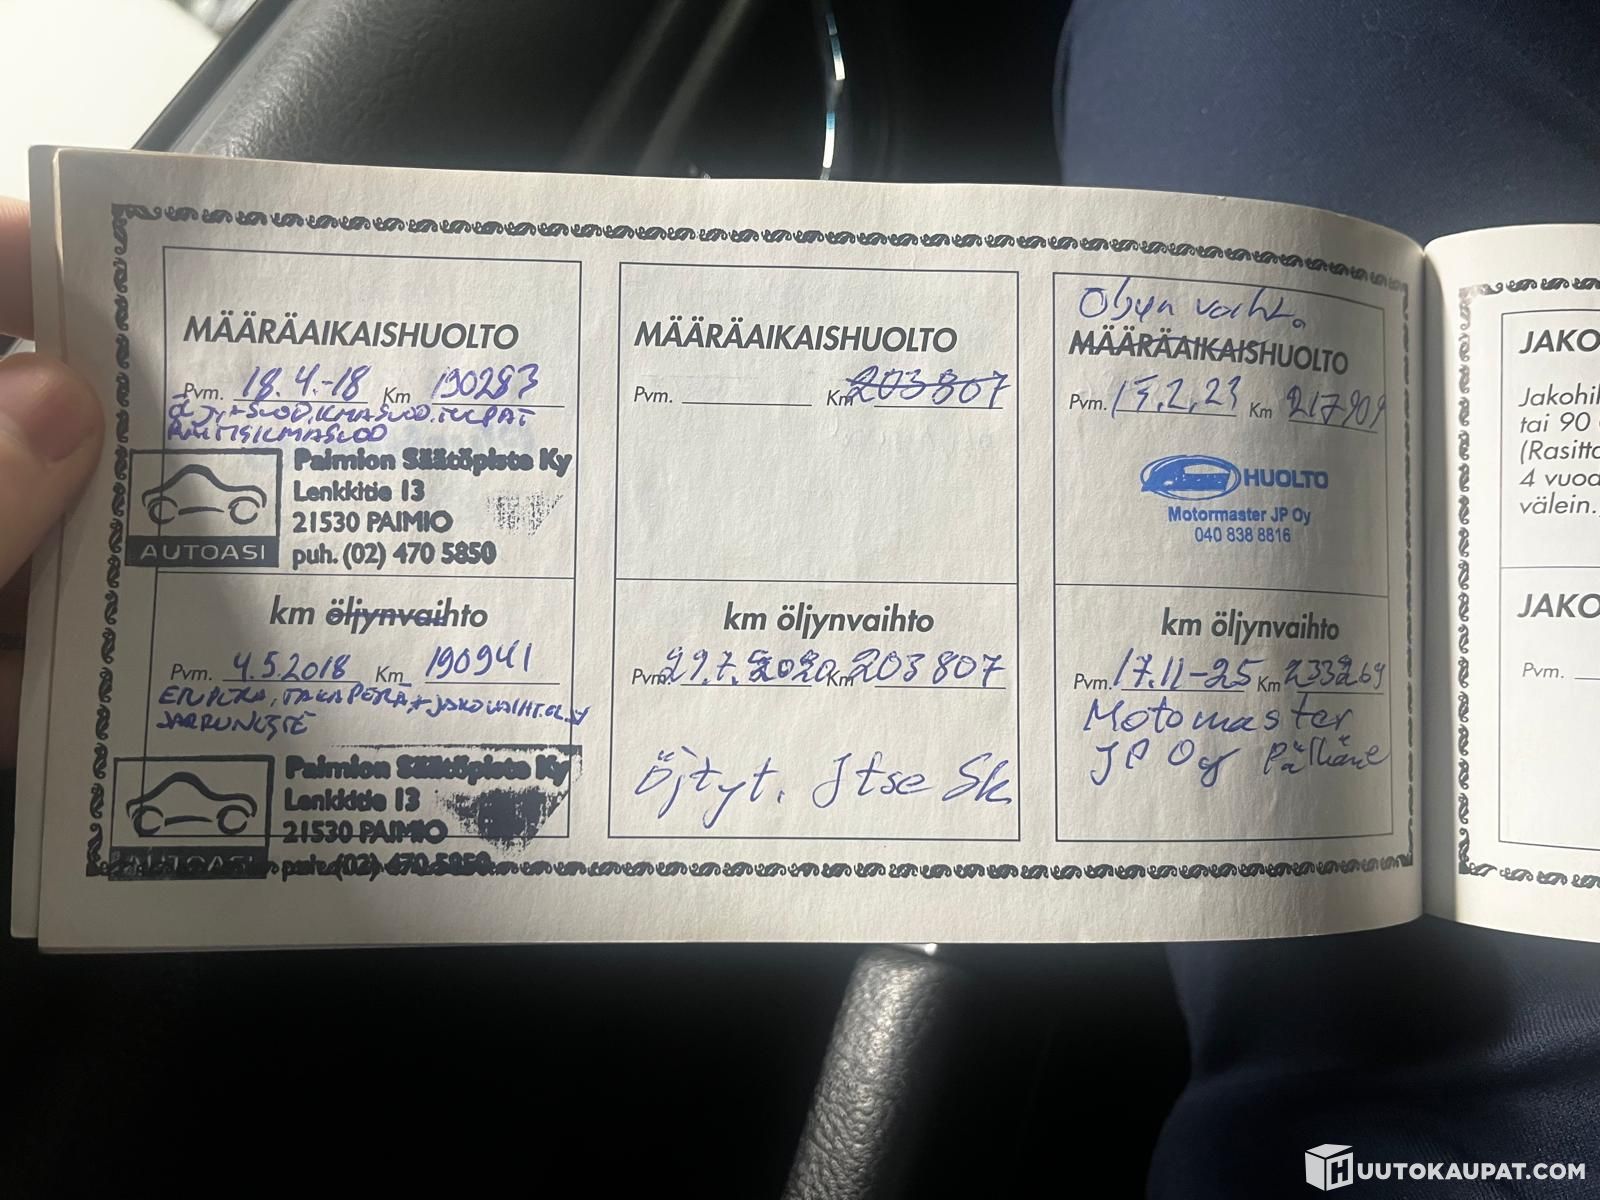 MÄÄRÄAIKAISHUOLTO
Pvm. 18.4.-18 Km 190283
AUTOASI
Paimion Säätöpiste Ky
Lenkkitie 13
21530 PAIMIO
puh. (02) 470 5850
km öljynvaihto
Pvm. 4.5.2018 Km 190941
JARRUNESTE
AUTOASI
Paimion Säätöpiste Ky
Lenkkitie 13
21530 PAIMIO
puh. (02) 470 5850
MÄÄRÄAIKAISHUOLTO
Pvm. Km 203807
km öljynvaihto
Pvm. 29.7.2020 Km 203807
öjtyt. Itse Sk
Öljyn vaihto
MÄÄRÄAIKAISHUOLTO
Pvm. 15.2.23 Km 217909
HUOLTO
Motormaster JP Oy
040 838 8816
km öljynvaihto
Pvm. 17.11-25 Km 233269
Motomaster
JP Oy Pälkäne
JAKO
Jakohi
tai 90
(Rasitt
4 vuod
välein.
JAKO
Pvm.
HUUTOKAUPAT.COM